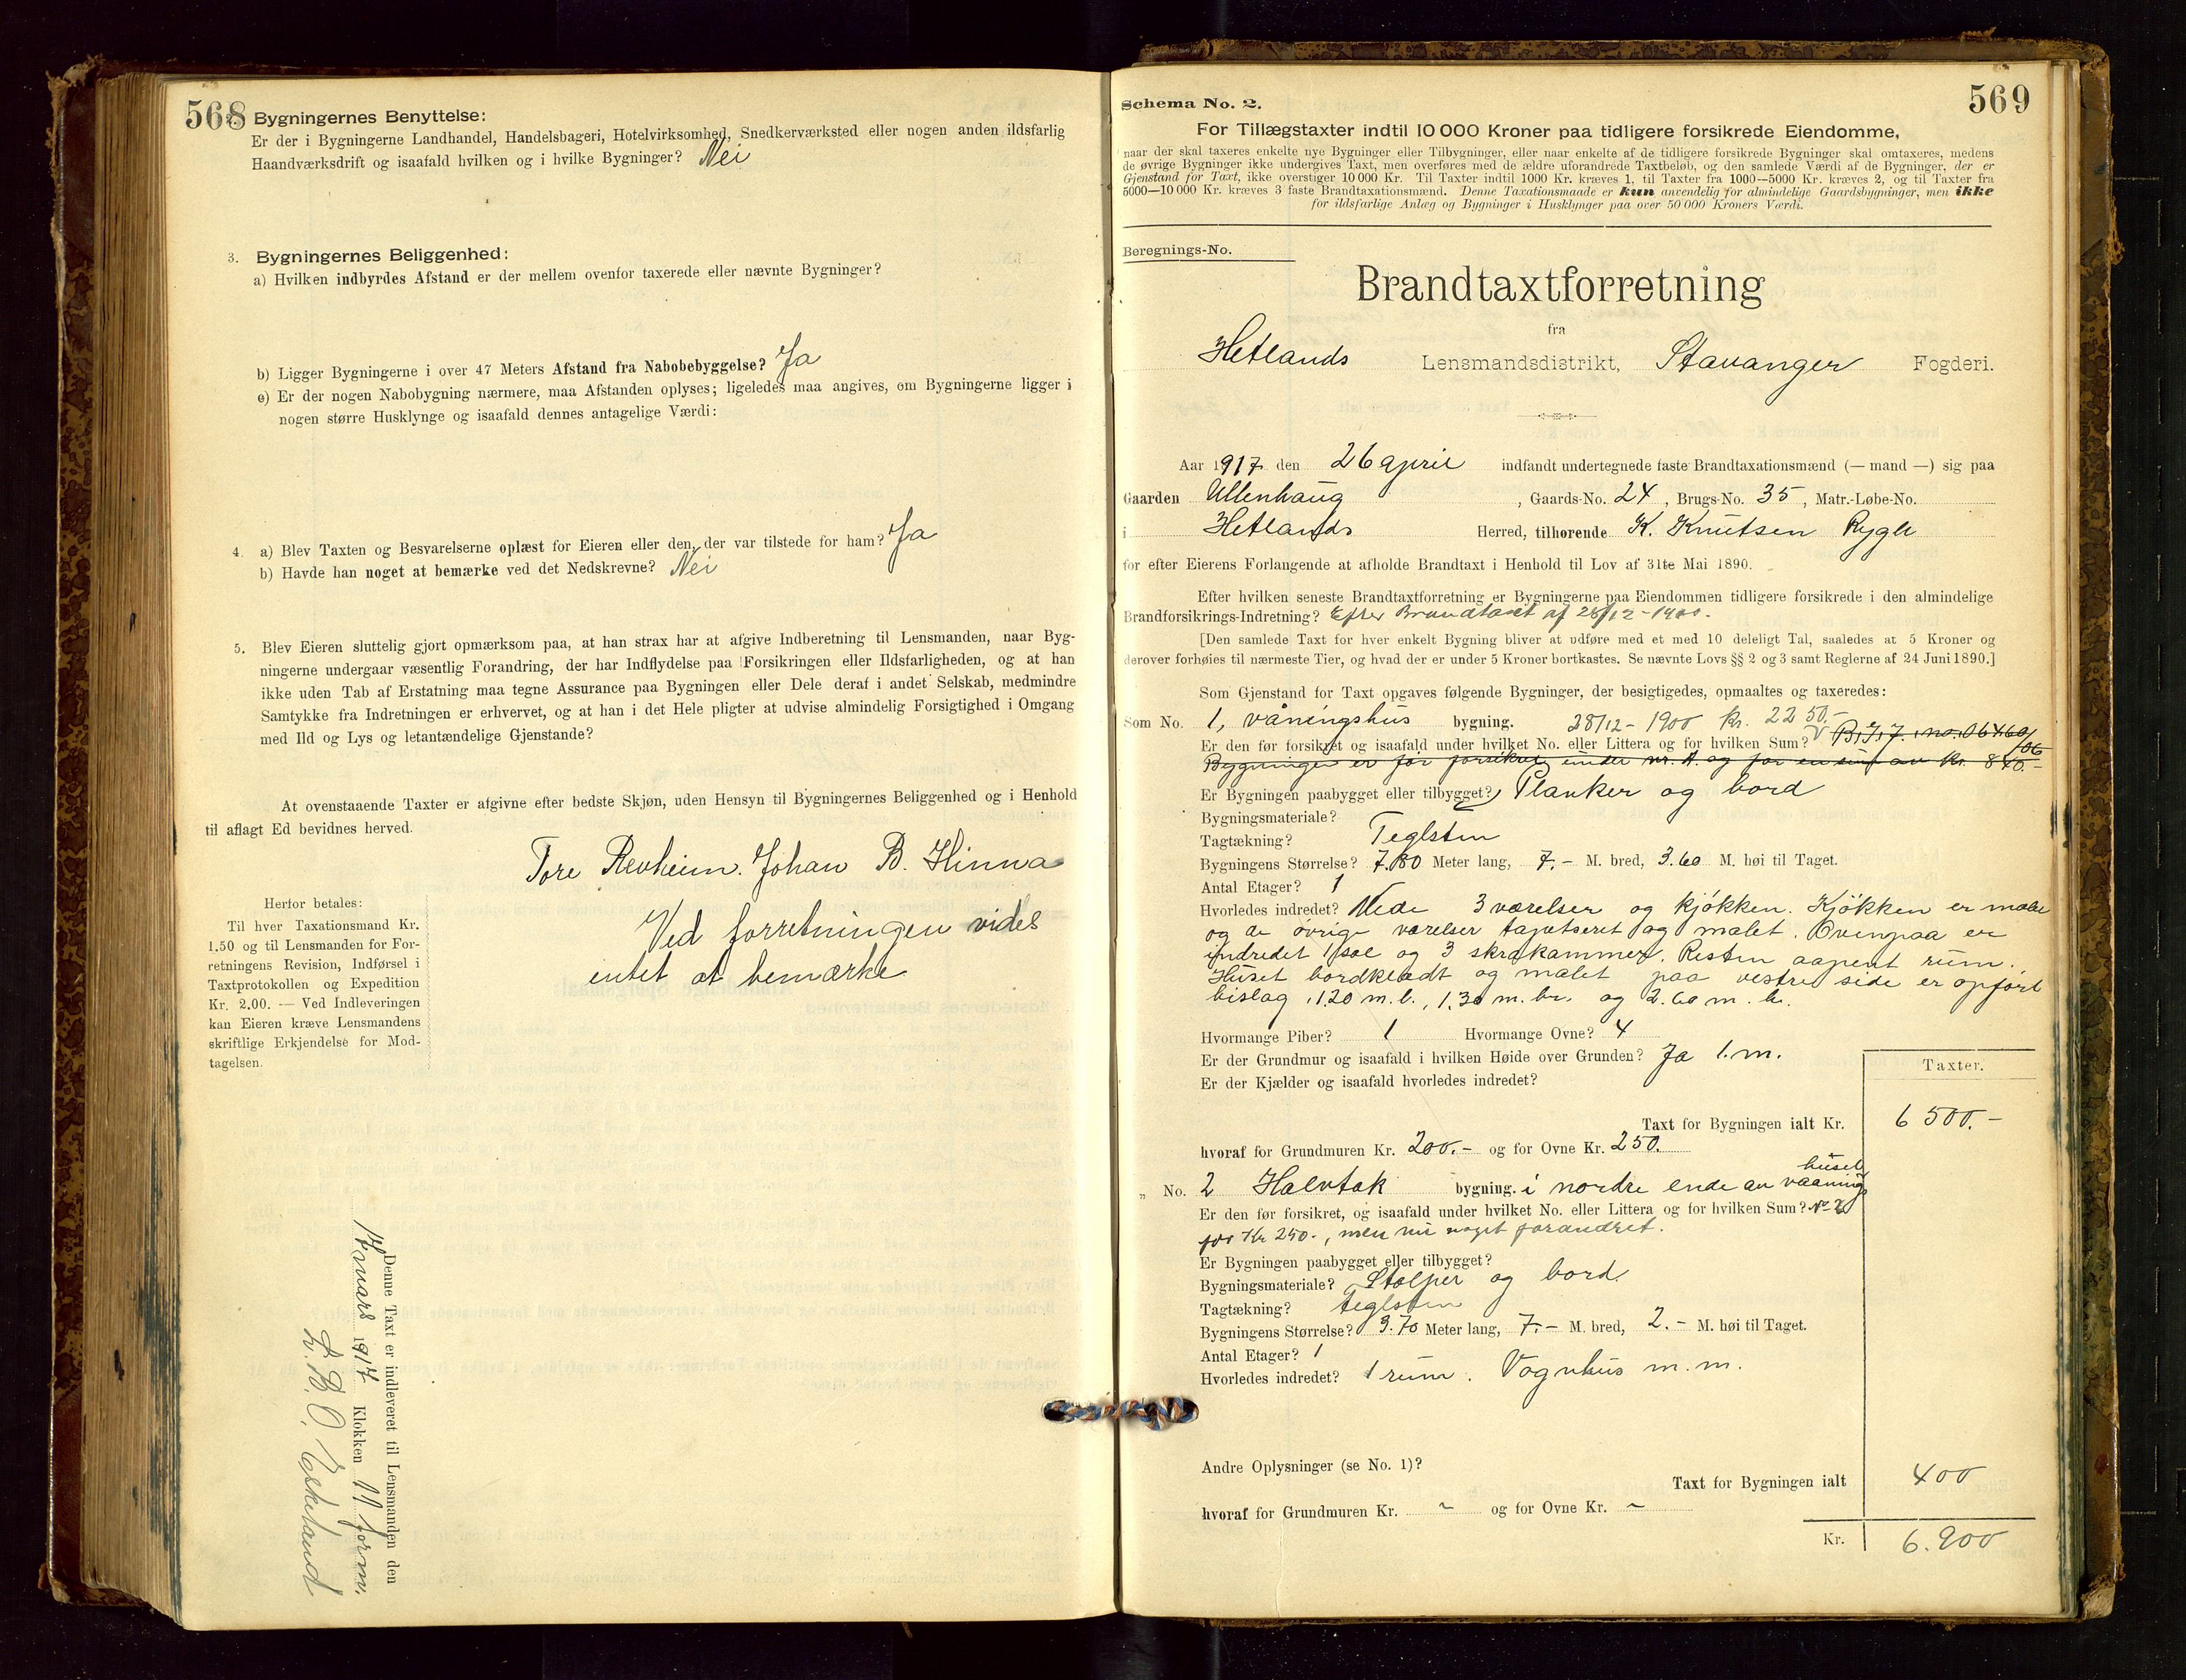 568
Bygningernes Benyttelse:
Er der i Bygningerne Landhandel, Handelsbageri, Hotelvirksomhed, Snedkerværksted eller nogen anden ildsfarlig
Haandværksdrift og isaafald hvilken og i hvilke Bygninger? Nei
3. Bygningernes Beliggenhed:
a) Hvilken indbyrdes Afstand er der mellem ovenfor taxerede eller nævnte Bygninger?
b) Ligger Bygningerne i over 47 Meters Afstand fra Nabobebyggelse? Ja
c) Er der nogen Nabobygning nærmere, maa Afstanden oplyses; ligeledes maa angives, om Bygningerne ligger i
nogen større Husklynge og isaafald dennes antagelige Værdi:
4. a) Blev Taxten og Besvarelserne oplæst for Eieren eller den, der var tilstede for ham? Ja
b) Havde han noget at bemærke ved det Nedskrevne? Nei
5. Blev Eieren sluttelig gjort opmærksom paa, at han strax har at afgive Indberetning til Lensmanden, naar Byg-
ningerne undergaar væsentlig Forandring, der har Indflydelse paa Forsikringen eller Ildsfarligheden, og at han
ikke uden Tab af Erstatning maa tegne Assurance paa Bygningen eller Dele deraf i andet Selskab, medmindre
Samtykke fra Indretningen er erhvervet, og at han i det Hele pligter at udvise almindelig Forsigtighed i Omgang
med Ild og Lys og letantændelige Gjenstande?
At ovenstaaende Taxter er afgivne efter bedste Skjøn, uden Hensyn til Bygningernes Beliggenhed og i Henhold
til aflagt Ed bevidnes herved.
Tore Revheim. Johan B. Hinna
Ved forretningen vides
intet at bemærke
Herfor betales:
Til hver Taxationsmand Kr.
1.50 og til Lensmanden for For-
retningens Revision, Indførsel i
Taxtprotokollen og Expedition
Kr. 2.00. — Ved Indleveringen
kan Eieren kræve Lensmandens
skriftlige Erkjendelse for Mod-
tagelsen.
Denne Taxt er indleveret til Lensmanden den
mars 1917 Klokken 11 form.
Eskeland
569
Schema No. 2.
For Tillægstaxter indtil 10 000 Kroner paa tidligere forsikrede Eiendomme,
naar der skal taxeres enkelte nye Bygninger eller Tilbygninger, eller naar enkelte af de tidligere forsikrede Bygninger skal omtaxeres, medens
de øvrige Bygninger ikke undergives Taxt, men overføres med de ældre uforandrede Taxtbeløb, og den samlede Værdi af de Bygninger, der er
Gjenstand for Taxt, ikke overstiger 10 000 Kr. Til Taxter indtil 1000 Kr. kræves 1, til Taxter fra 1000—5000 Kr. kræves 2, og til Taxter fra
5000—10 000 Kr. kræves 3 faste Brandtaxationsmænd. Denne Taxationsmaade er kun anvendelig for almindelige Gaardsbygninger, men ikke
for ildsfarlige Anlæg og Bygninger i Husklynger paa over 50 000 Kroners Værdi.
Beregnings-No.
Brandtaxtforretning
fra
Hetlands Lensmandsdistrikt, Stavanger Fogderi.
Aar 1917 den 26 april indfandt undertegnede faste Brandtaxationsmænd (— mand —) sig paa
Gaarden Ullenhaug, Gaards-No. 24, Brugs-No. 35, Matr.-Løbe-No.
i Hetlands Herred, tilhørende K. Knutsen Rygh
for efter Eierens Forlangende at afholde Brandtaxt i Henhold til Lov af 31te Mai 1890.
Efter hvilken seneste Brandtaxtforretning er Bygningerne paa Eiendommen tidligere forsikrede i den almindelige
Brandforsikrings-Indretning? Efter Brandtaxt af 28/12 - 1900.
[Den samlede Taxt for hver enkelt Bygning bliver at udføre med et med 10 deleligt Tal, saaledes at 5 Kroner og
derover forhøies til nærmeste Tier, og hvad der er under 5 Kroner bortkastes. Se nævnte Lovs §§ 2 og 3 samt Reglerne af 24 Juni 1890.]
Som Gjenstand for Taxt opgaves følgende Bygninger, der besigtigedes, opmaaltes og taxeredes:
Som No. 1, våningshus bygning. 28/12 - 1900 kr. 2250.-
Er den før forsikret og isaafald under hvilket No. eller Littera og for hvilken Sum?
Bygningen er før forsikret under nr. A. og for en sum av kr. 840.-
Er Bygningen paabygget eller tilbygget? Planker og bord
Bygningsmateriale?
Tagtækning? Teglsten
Bygningens Størrelse? 7.80 Meter lang, 7.- M. bred, 3.60 M. høi til Taget.
Antal Etager? 1
Hvorledes indredet? Nede 3 værelser og kjøkken. Kjøkken er malet
og de øvrige værelser tapetseret og malet. Ovenpaa er
indredet 1 sal og 3 skråkammer. Resten aapent rum.
Huset bordklædt og malet paa vestre side er opført
bislag, 1.20 m. l., 1.30 m. br. og 2.60 m. h.
Hvormange Piber? 1 Hvormange Ovne? 4
Er der Grundmur og isaafald i hvilken Høide over Grunden? Ja 1. m.
Er der Kjælder og isaafald hvorledes indredet?
Taxter.
Taxt for Bygningen ialt Kr. 6 500.-
hvoraf for Grundmuren Kr. 200.- og for Ovne Kr. 250.
„ No. 2 Halvtak bygning. i nordre ende av vaanings
huset
Er den før forsikret, og isaafald under hvilket No. eller Littera og for hvilken Sum? No 2
for Kr 250.-, men nu noget forandret.
Er Bygningen paabygget eller tilbygget?
Bygningsmateriale? Stolper og bord
Tagtækning? teglsten
Bygningens Størrelse? 3.70 Meter lang, 7.- M. bred, 2.- M. høi til Taget.
Antal Etager? 1
Hvorledes indredet? 1 rum. Vognhus m. m.
Andre Oplysninger (se No. 1)?
Taxt for Bygningen ialt 400
hvoraf for Grundmuren Kr. ~ og for Ovne Kr. ~
Kr. 6.900